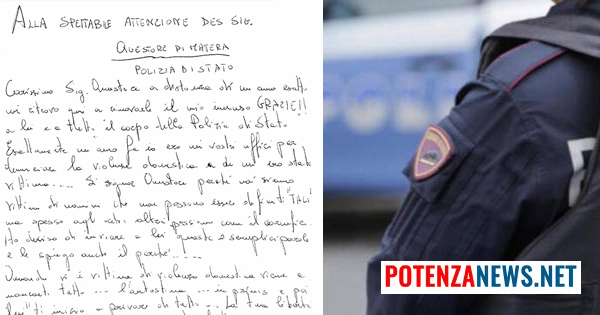 ALLA SPETTABILE ATTENZIONE DES SIG.
QUESTORE DI MATERA
POLIZIA DI STATO
Carissimo Sig. Questore a distanza di un anno esatto
mi ritrovo qui a rinnovarle il mio immenso GRAZIE!!
a lei e a tutto il corpo della Polizia di Stato.
Esattamente un anno fa io ero nei vostri uffici per
denunciare la violenza domestica di cui ero stata
vittima..... Si signor Questore perché noi siamo
vittime di uomini che non possono essere definiti "TALI"
ma spesso agli occhi altrui passiamo come il carnefice.
Ho deciso di inviare a lei queste semplici parole
e le spiego anche il perché.....
Quando si è vittime di violenza domestica viene a
mancarti tutto ... l'autostima ... in primis e poi
inizi a privare di tutto ... La tua libertà
POTENZANEWS.NET